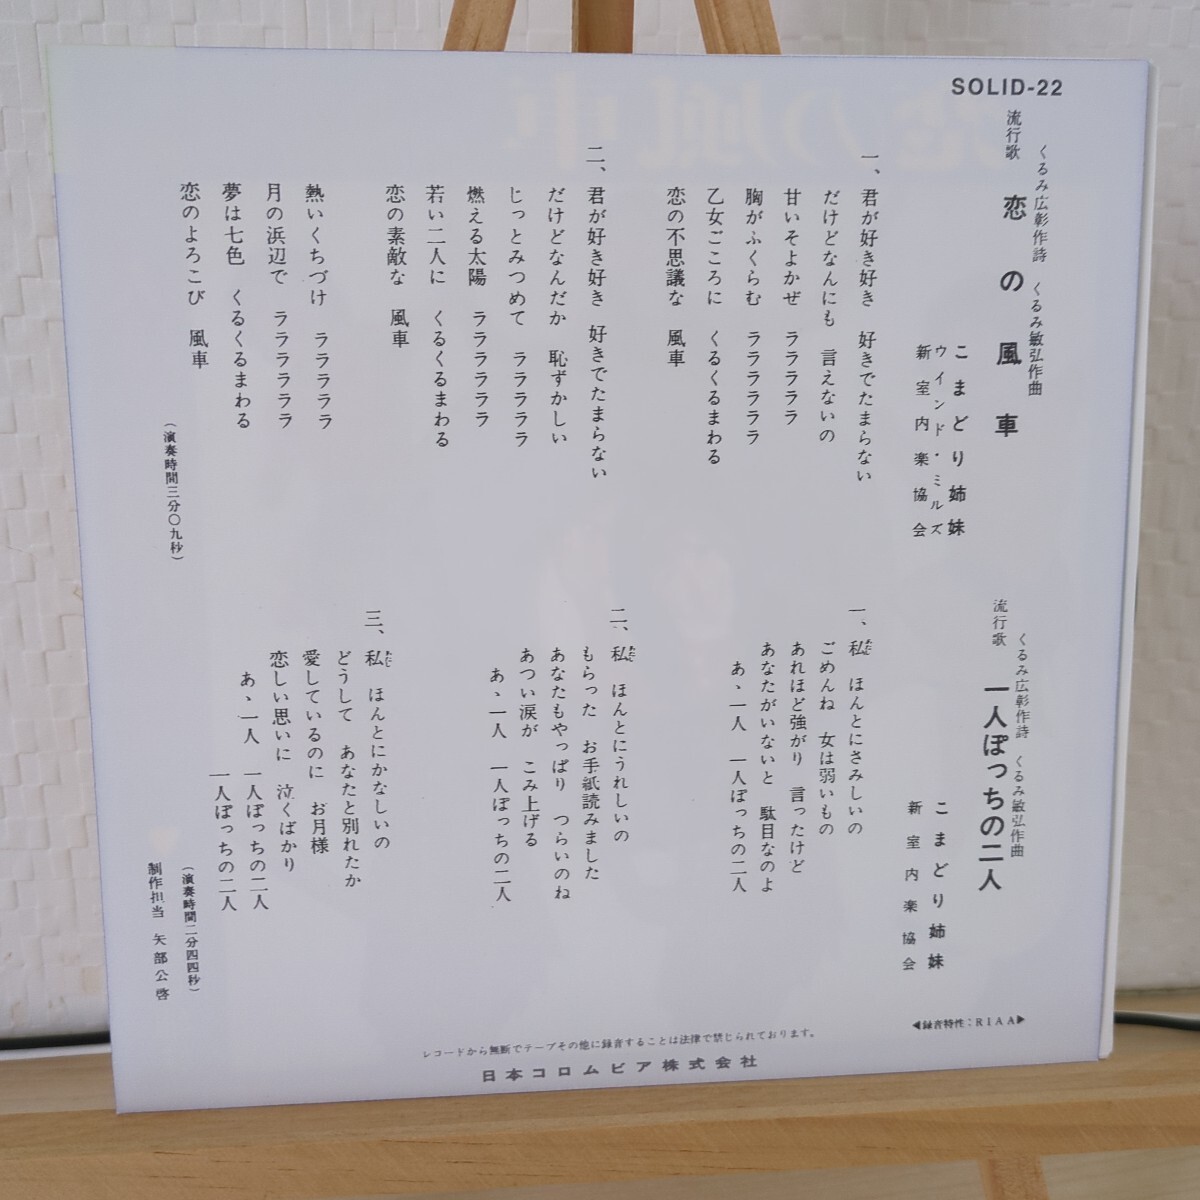 SOLID-22
流行歌
くるみ広彰作詩 くるみ敏弘作曲
恋の風車
こまどり姉妹
ウインド・ミルズ
新室内楽協会
一、君が好き好き 好きでたまらない
だけどなんにも 言えないの
甘いそよかぜ ラララララ
胸がふくらむ ラララララ
乙女ごころに くるくるまわる
恋の不思議な 風車
二、君が好き好き 好きでたまらない
だけどなんだか 恥ずかしい
じっとみつめて ラララララ
燃える太陽 ラララララ
若い二人に くるくるまわる
恋の素敵な 風車
熱いくちづけ ラララララ
月の浜辺で ラララララ
夢は七色 くるくるまわる
恋のよろこび 風車
(演奏時間三分〇九秒)
流行歌
くるみ広彰作詩 くるみ敏弘作曲
一人ぽっちの二人
こまどり姉妹
新室内楽協会
一、私 ほんとにさみしいの
ごめんね 女は弱いもの
あれほど強がり 言ったけど
あなたがいないと 駄目なのよ
あゝ一人 一人ぽっちの二人
二、私 ほんとにうれしいの
もらった お手紙読みました
あなたもやっぱり つらいのね
あつい涙が こみ上げる
あゝ一人 一人ぽっちの二人
三、私 ほんとにかなしいの
どうして あなたと別れたか
愛しているのに お月様
恋しい思いに 泣くばかり
あゝ一人 一人ぽっちの二人
一人ぽっちの二人
(演奏時間二分四四秒)
制作担当 矢部公啓
◀録音特性：RIAA▶
レコードから無断でテープその他に録音することは法律で禁じられております。
日本コロムビア株式会社